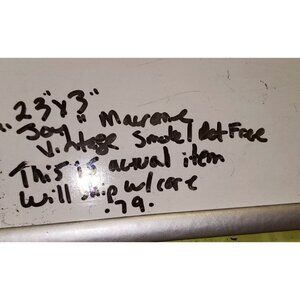 "23"x3"
"Joy" Macrame
Vintage Smoke/Pet Free
This is actual item
Will ship w/care
.79.